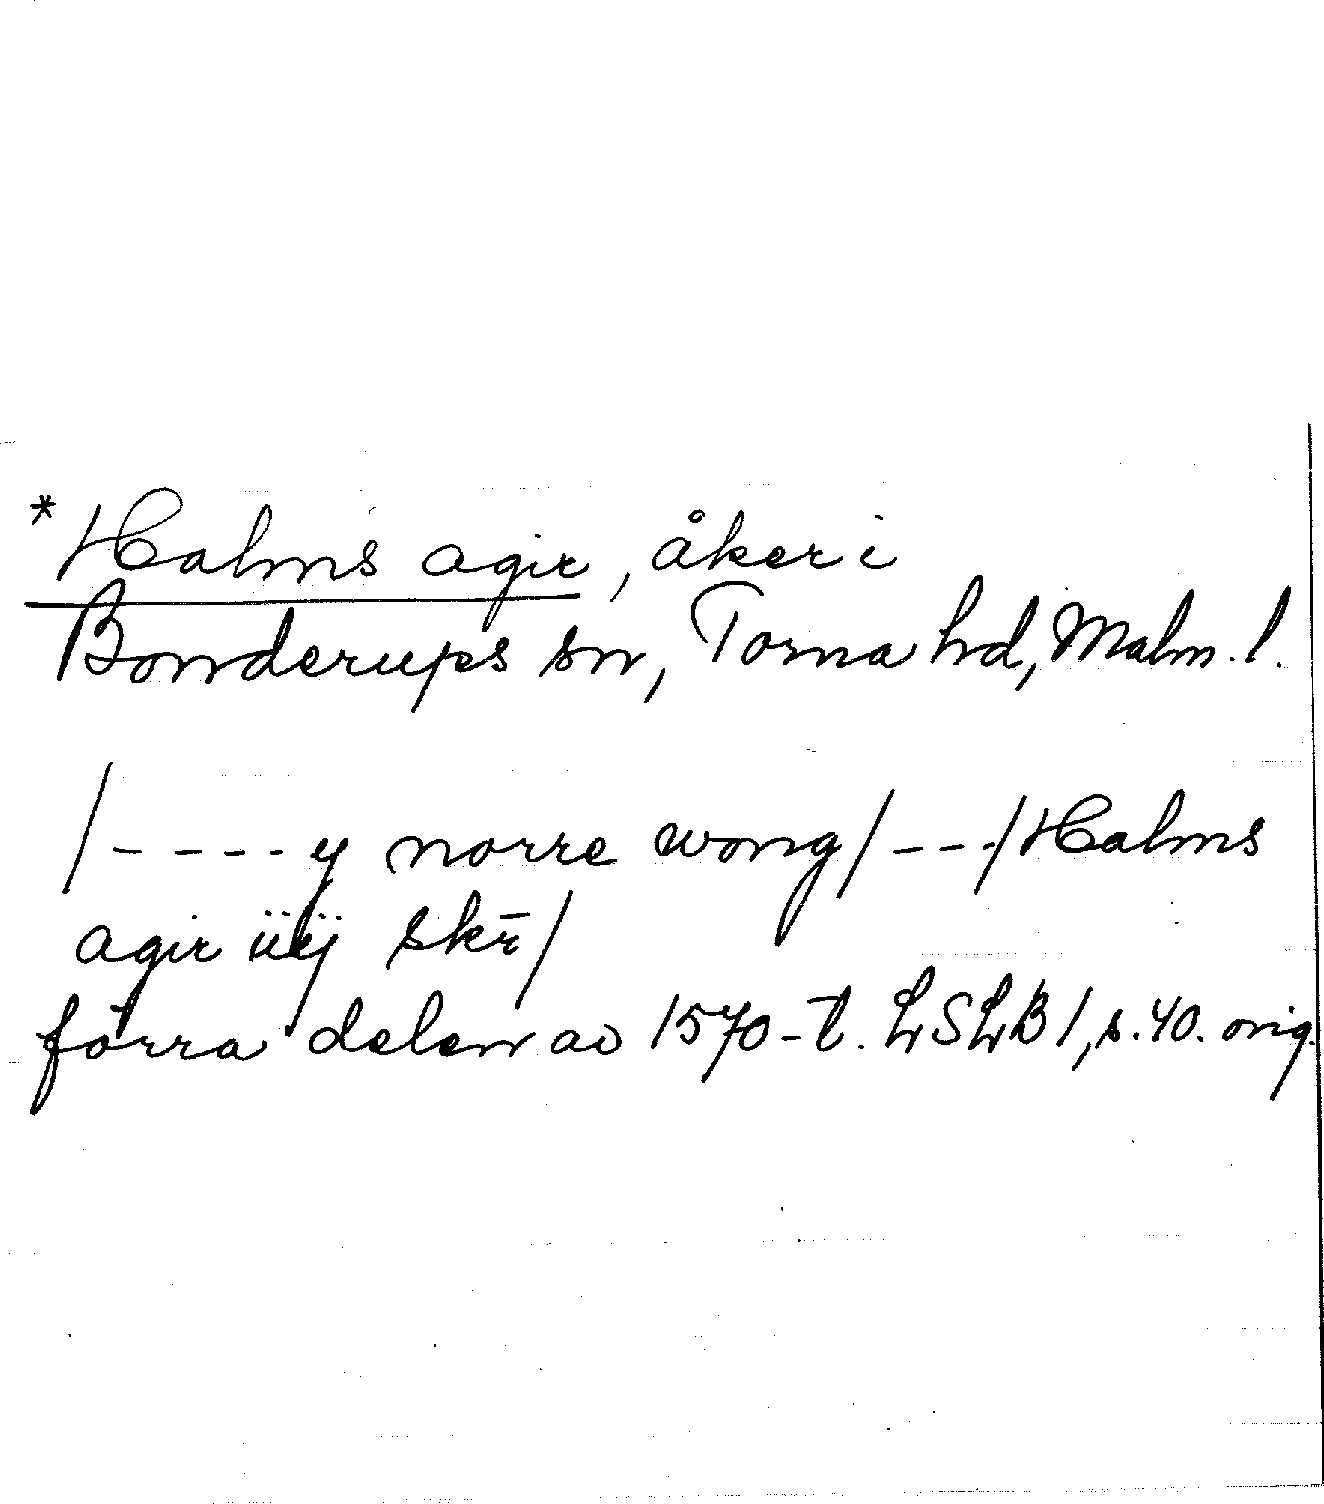 *Halms agir, åker i
Bonderups sn, Torna hd, Malm. l.
/----y norre wong/---/Halms
agir iiij skr̄/
förra delen av 1570-t. LSLB 1, s.40. orig.